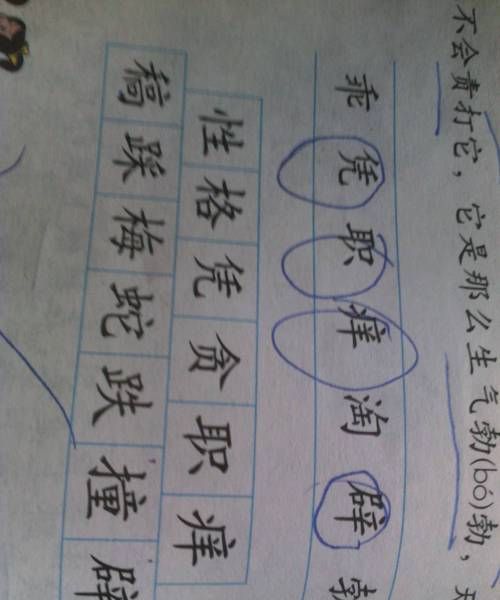 不会责打它，它是那么生气勃(bó)勃，天
乖凭职痒淘辟勃
性格凭贪职痒
稿踩梅蛇跌撞辟